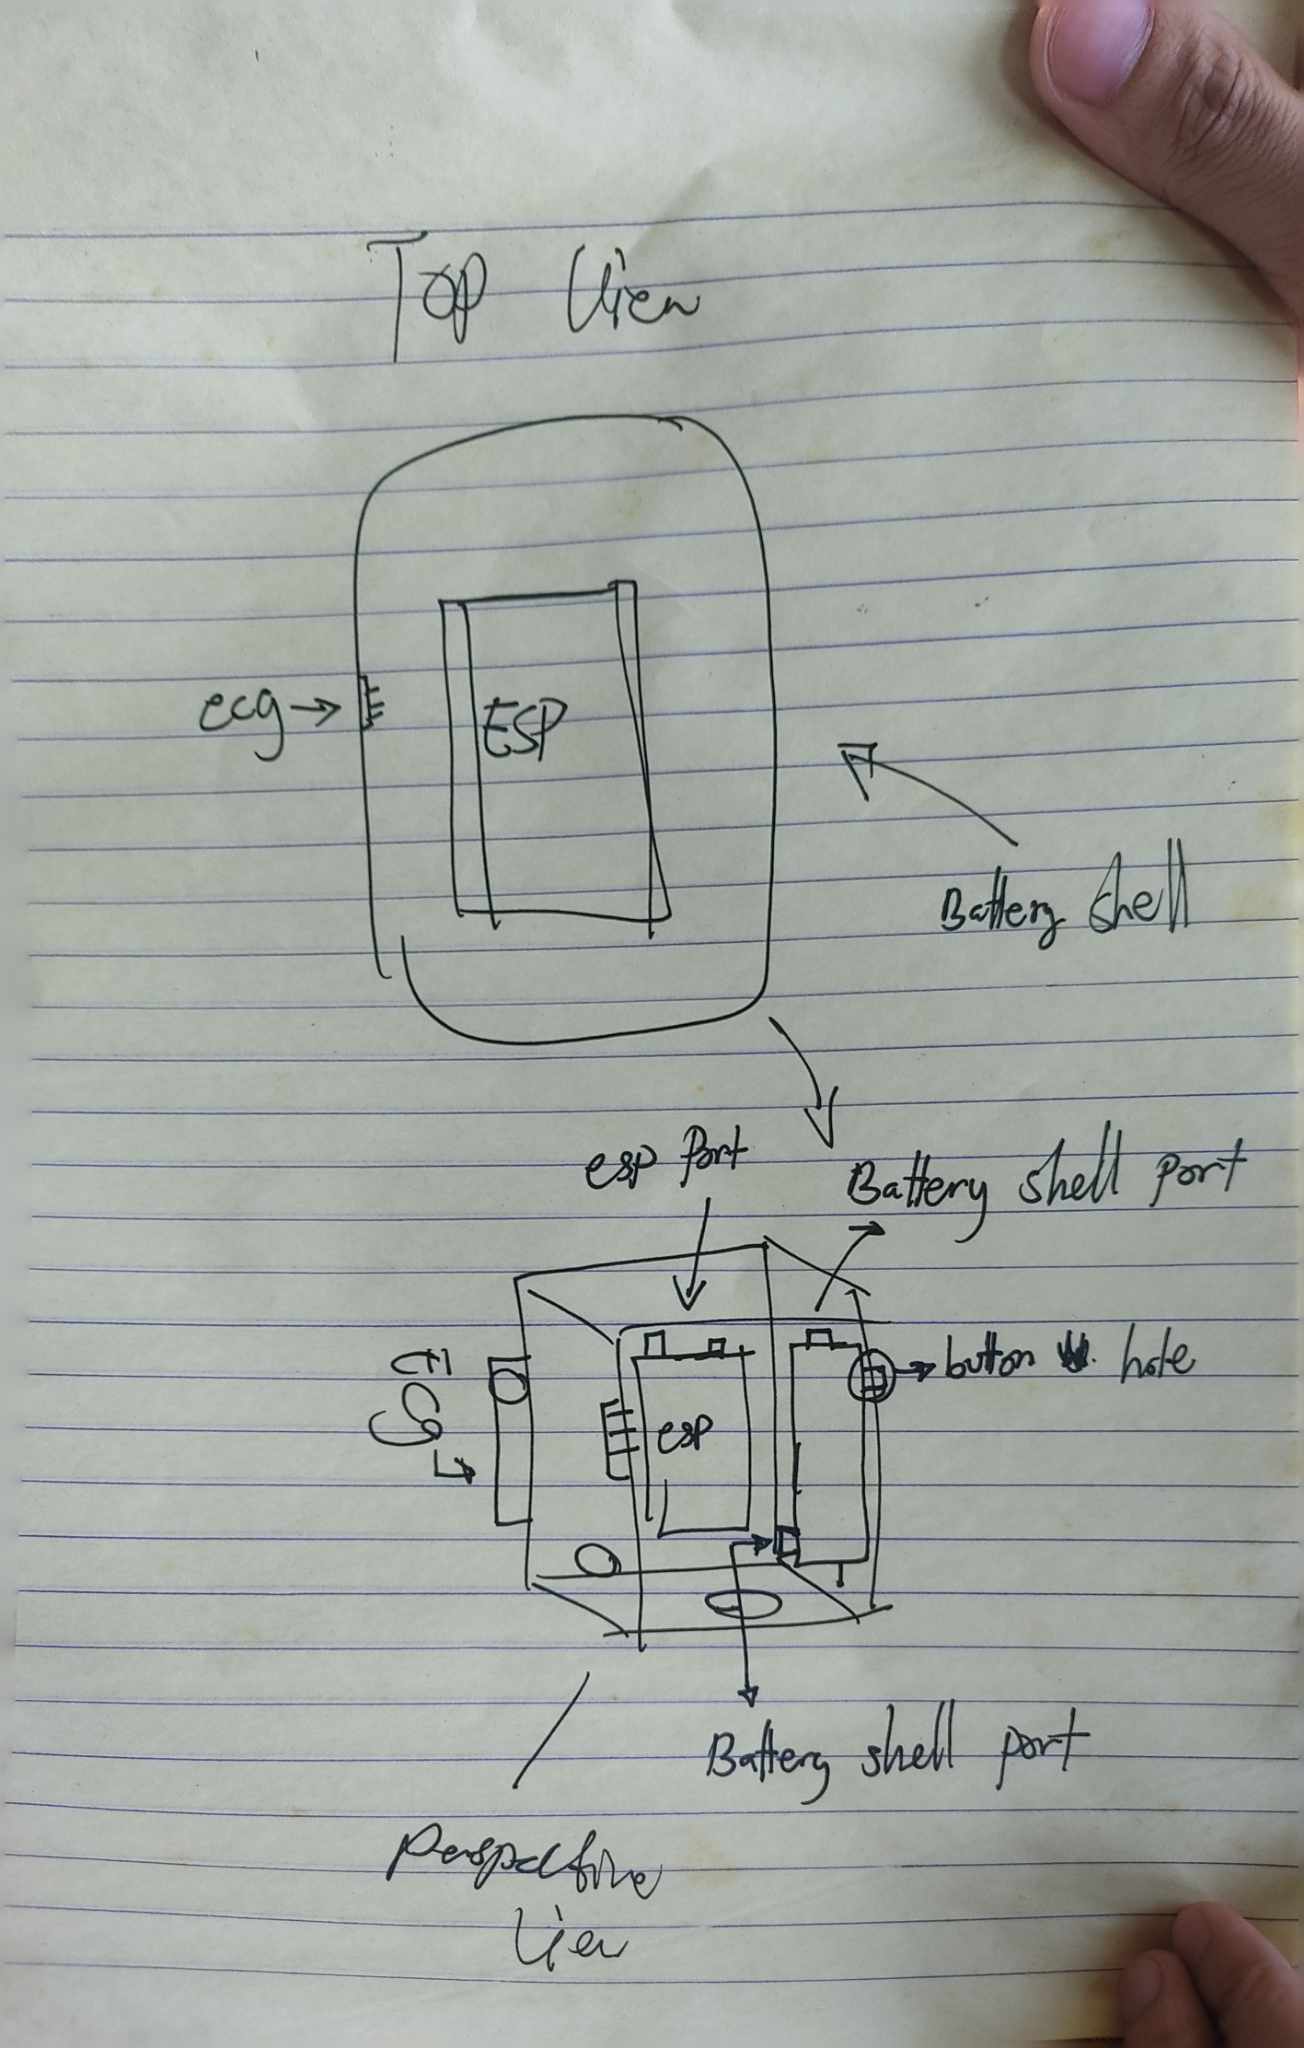 Top View
ecg
ESP
Battery shell
esp Port
Battery shell port
button hole
ECG
esp
Battery shell port
Perspective
View